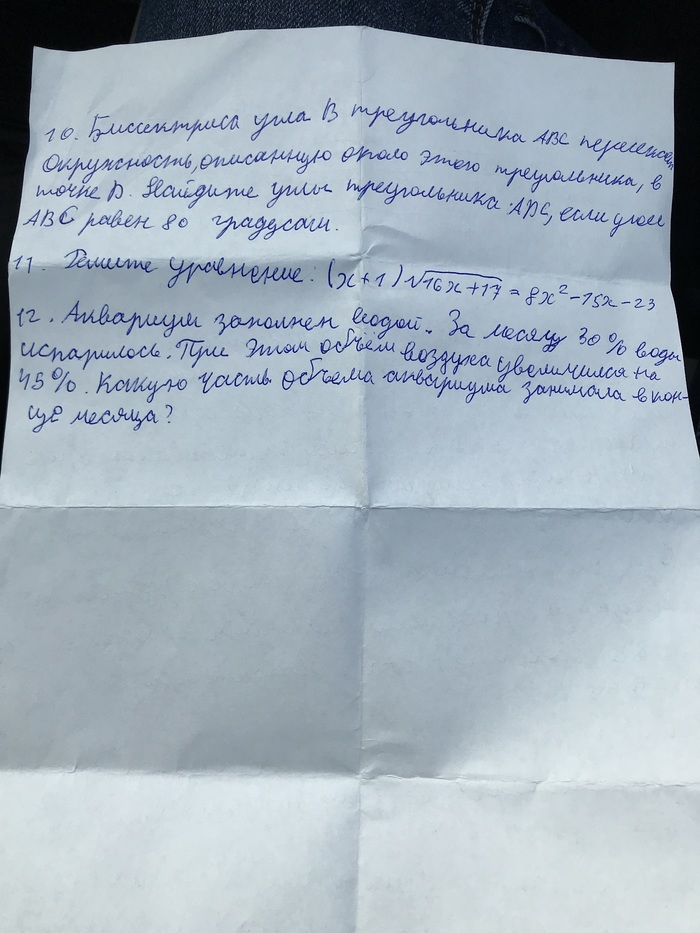 10. Биссектриса угла В треугольника АВС пересекает
окружность, описанную около этого треугольника, в
точке D. Найдите углы треугольника ADC, если угол
АВС равен 80 градусам.
11. Решите уравнение: (x+1)√16x+17 = 8x²-15x-23
12. Аквариум заполнен водой. За месяц 30% воды
испарилось. При этом объём воздуха увеличился на
45%. Какую часть объема аквариума занимала в кон-
це месяца?